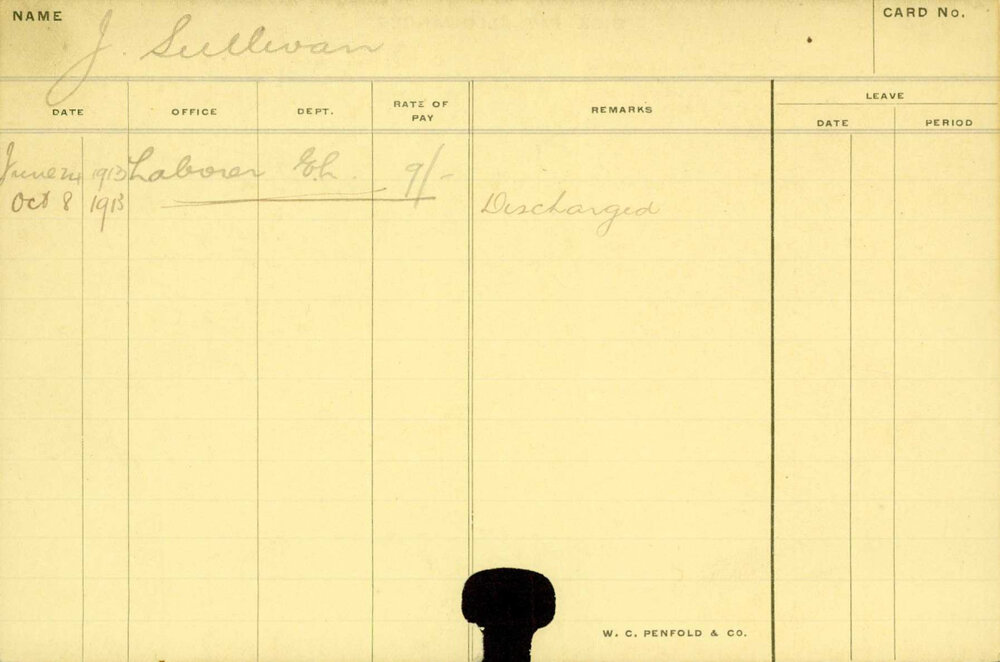 NAME J. Sullivan CARD No.
DATE OFFICE DEPT. RATE OF PAY REMARKS LEAVE
DATE PERIOD
June 24 1913 Laborer 9/-
Oct 8 1913 Discharged
W. C. PENFOLD & CO.